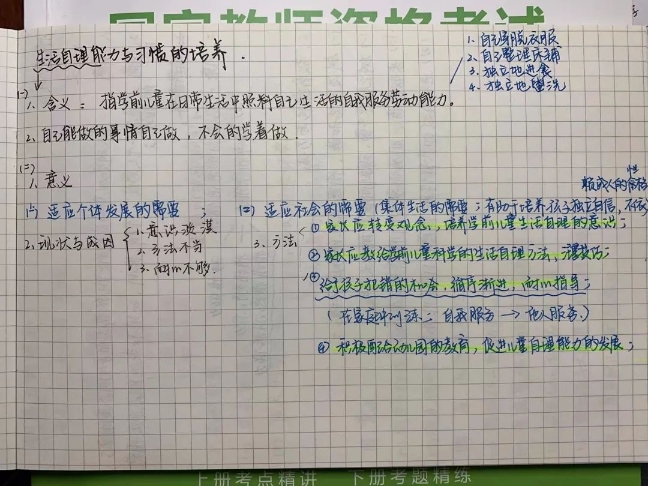 国家教师资格考试
生活自理能力与习惯的培养.
1. 自己穿脱衣服
2. 自己整理床铺
3. 独立地进食
4. 独立地盥洗
(一)
1. 含义: 指学前儿童在日常生活中照料自己生活的自我服务劳动能力。
2. 自己能做的事情自己做, 不会的学着做.
(二)
1. 意义
(1) 适应个体发展的需要;
(2) 适应社会的需要 (集体生活的需要; 有助于培养孩子独立自信, 不依
赖成人的性格
2. 现状与成因
1. 意识淡漠
2. 方法不当
3. 耐心不够.
3. 方法
① 家长应转变观念, 培养学前儿童生活自理的意识;
② 家长应教给学前儿童科学的生活自理方法,
③ 给予孩子犯错的机会, 循序渐进, 耐心指导;
(在家庭中训练: 自我服务 → 他人服务.)
④ 积极配合幼儿园的教育, 促进儿童自理能力的发展;
上册考点精讲 下册考题精练